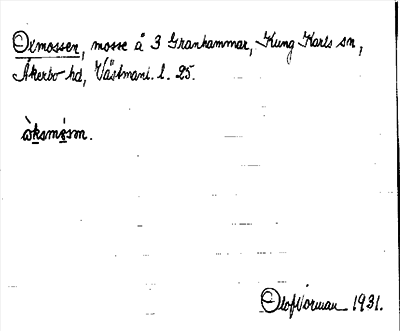 Oxmossen, mosse å 3 Granhammar, Kung Karls sn,
Åkerbo hd, Västmanl. l. 25.
Olof Norman 1931.